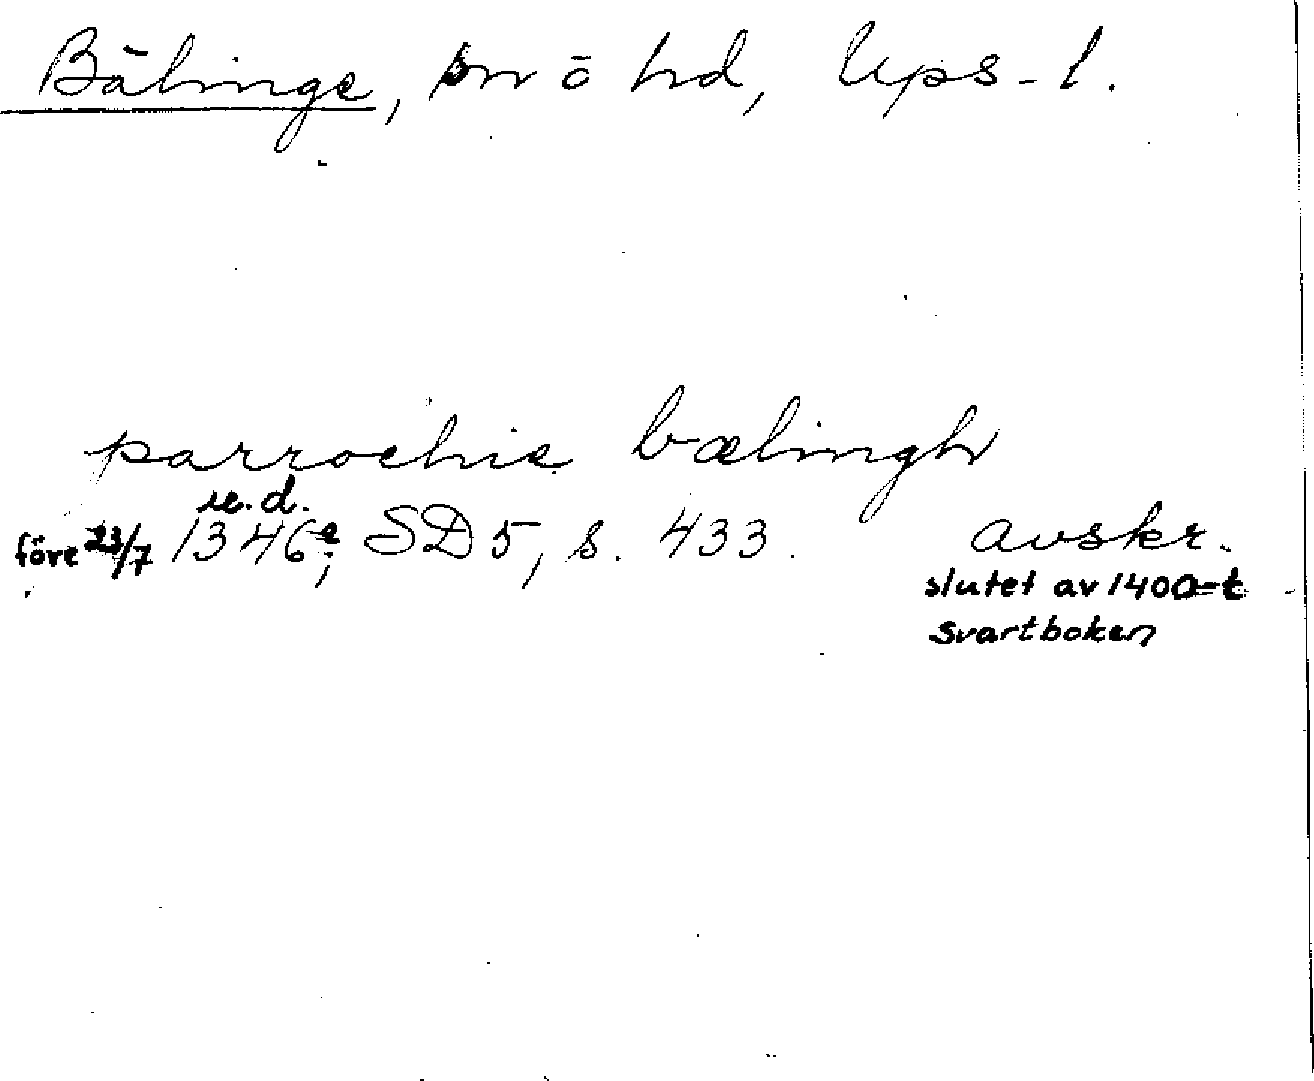 Bälinge, sn o hd, Upps-l.
parrochie bælingh
u.d.
före 23/7 1346; SD 5, s. 433. avskr.
slutet av 1400-t
svartboken